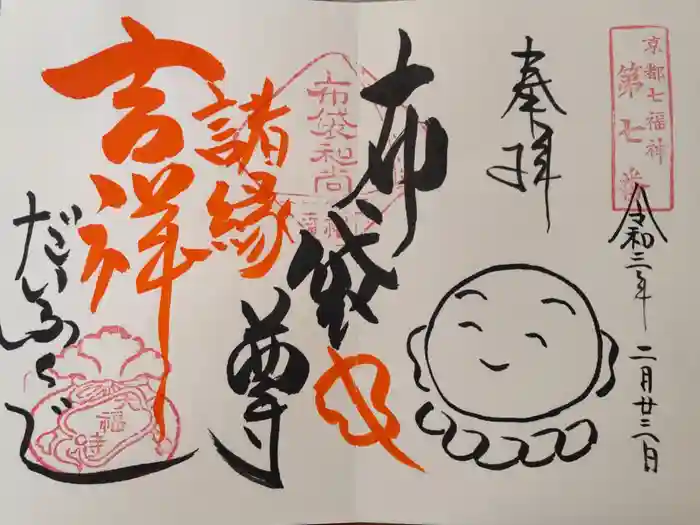 京都七福神
第七番
令和二年
二月廿三日
奉拝
布袋
尊
布袋和尚
諸縁
吉祥
だいふくじ
福寺